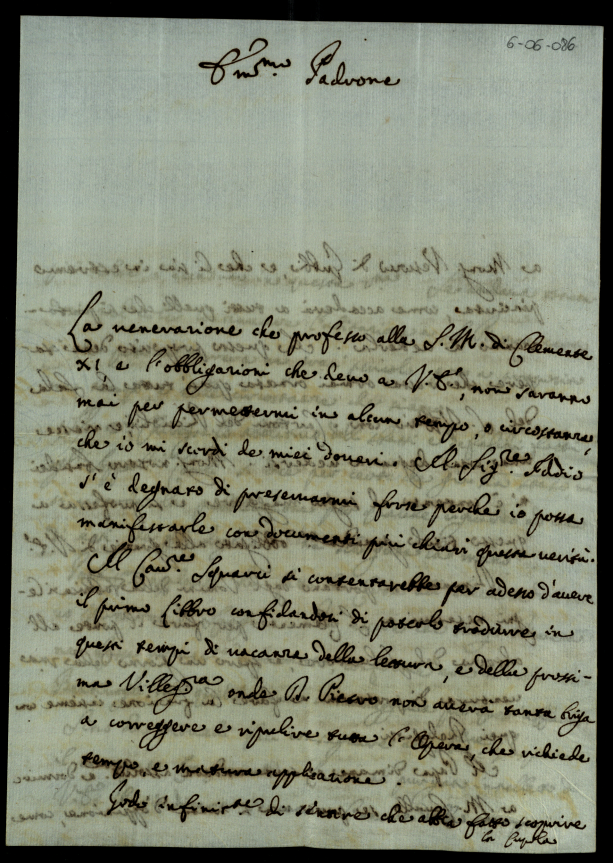 6-06-086
Em.mo Padrone
La venerazione che professo alla S. M. di Clemente
XI, e l'obbligazioni che devo a V. S., non saranno
mai per permettermi in alcun tempo, o circostanza,
che io mi scordi de miei doveri. Il Sig.re Iddio
s'è degnato di preservarmi forse perche io possa
manifestarle con documenti più chiari questa verità.
Il Cav.re Squarci si contentarebbe per adesso d'avere
il primo Libbro confidandosi di poterlo tradurre in
questi tempi di vacanza della lettura, e della prossi-
ma Villeg.ra onde D. Pietro non averà tanta briga
a correggere e ripulire tutta l'Opera, che richiede
tempo e matura applicazione.
Godo infinit.te di sentire che abbia fatto scoprire
la Cupola